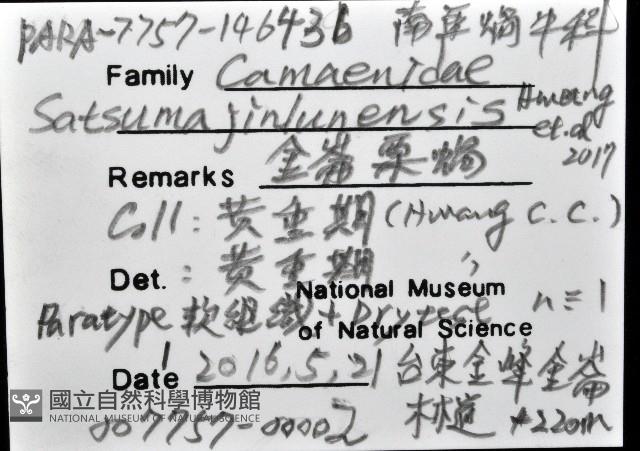 PARA-7757-146436 南亞蝸牛科
Family Camaenidae
Satsuma jinlunensis Hwang et.al 2017
Remarks 金崙栗蝸
Coll: 黃重期 (Hwang C. C.)
Det.: 黃重期 〃
National Museum
Paratype 軟組織+Dry test n=1
of Natural Science
Date 2016,5,21 台東金峰金崙
國立自然科學博物館
NATIONAL MUSEUM OF NATURAL SCIENCE
007757-00002 林道 220m